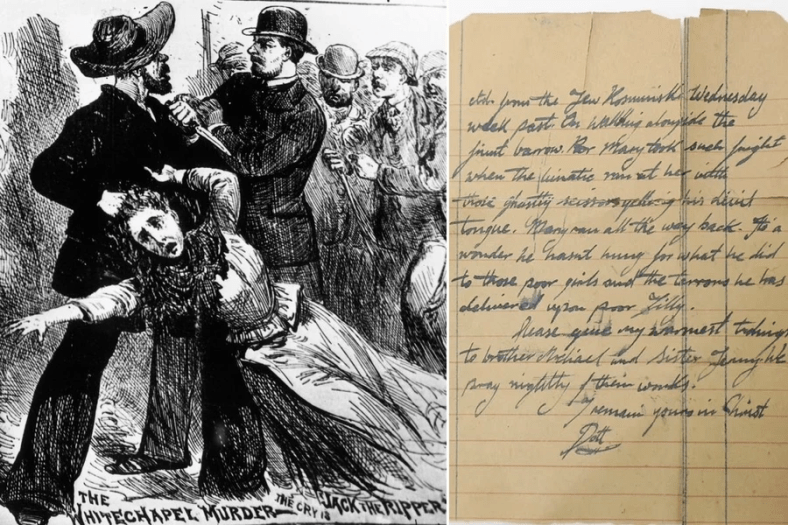 THE
WHITECHAPEL MURDER — THE CRY IS "JACK THE RIPPER"
from the Jew Kosminski Wednesday
week past On walking alongside the
fruit barrow. Poor Mary took such fright
when the lunatic ran at her with
those ghastly scissors yelling his devil
tongue. Mary ran all the way back. Its a
wonder he hasnt hung for what he did
to those poor girls and the terrors he has
delivered upon poor Tilly.
Please give my warmest tidings
to brother Michael and Sister we
pray nightly of their works.
I remain yours in Christ